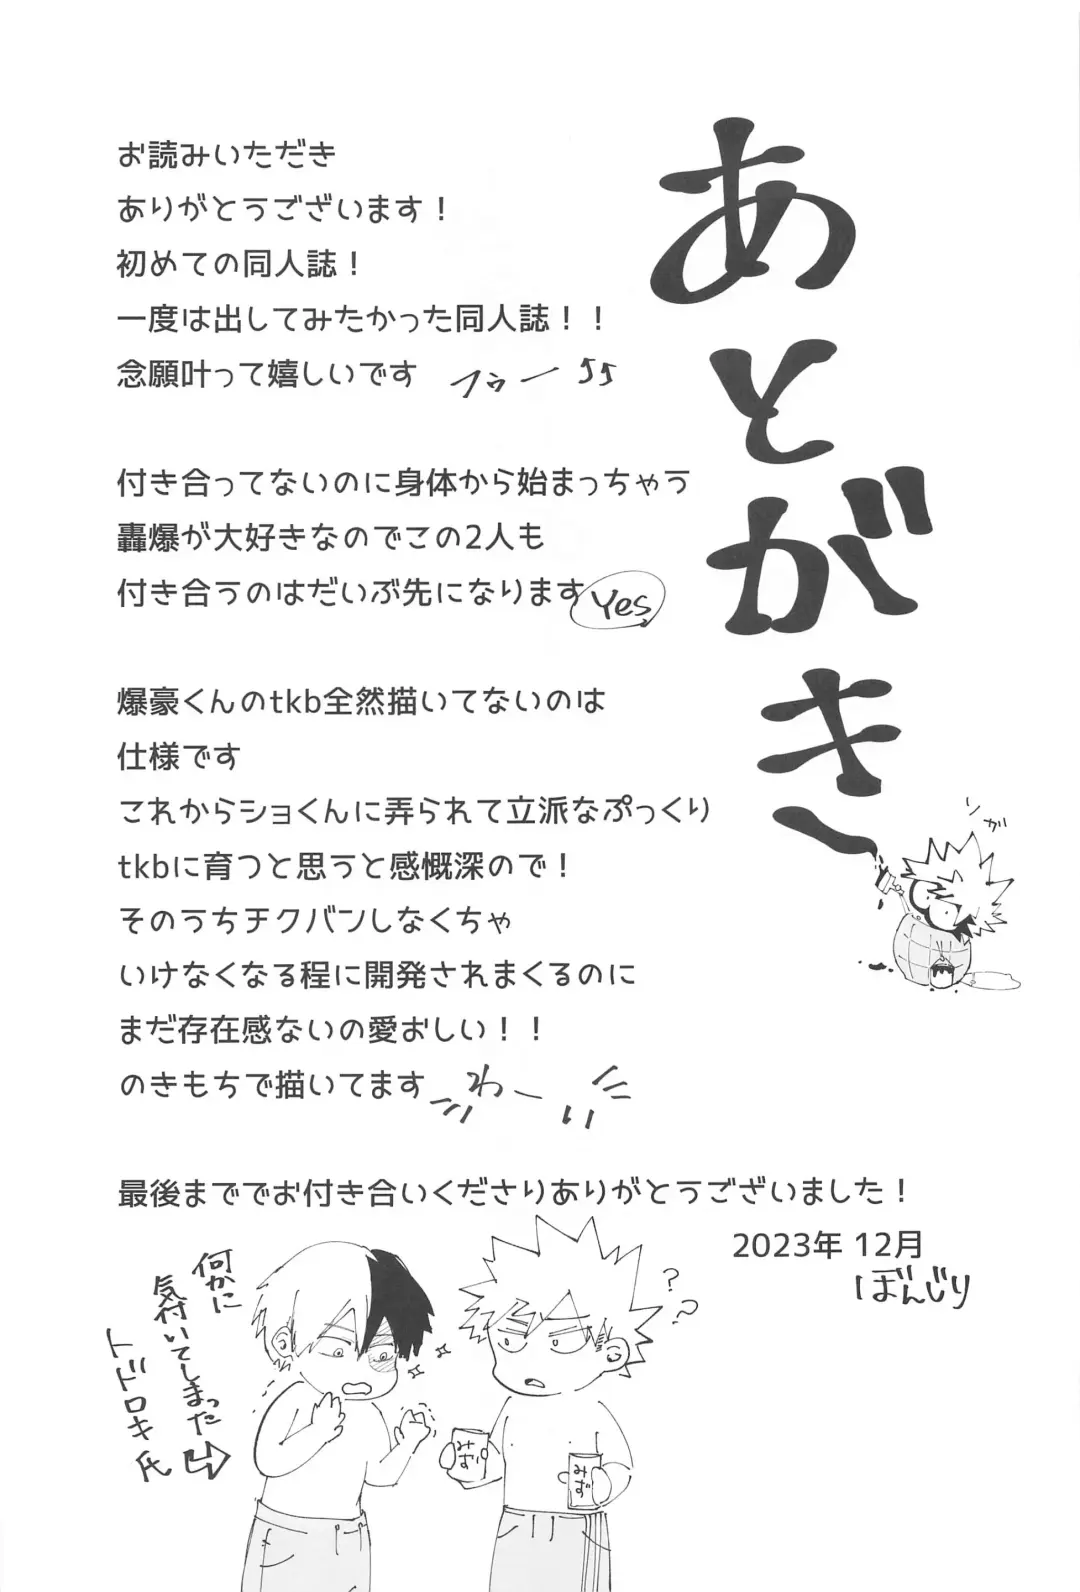 あとがき
お読みいただき
ありがとうございます！
初めての同人誌！
一度は出してみたかった同人誌！！
念願叶って嬉しいです
付き合ってないのに身体から始まっちゃう
轟爆が大好きなのでこの2人も
付き合うのはだいぶ先になります
Yes
爆豪くんのtkb全然描いてないのは
仕様です
これからショくんに弄られて立派なぷっくり
tkbに育つと思うと感慨深のので！
そのうちチクバンしなくちゃ
いけなくなる程に開発されまくるのに
まだ存在感ないの愛おしい！！
のきもちで描いてます
わー
最後まででお付き合いくださりありがとうございました！
2023年 12月
ぼんじり
何かに
気付いてしまった
トドロキ氏
??
みず
みず